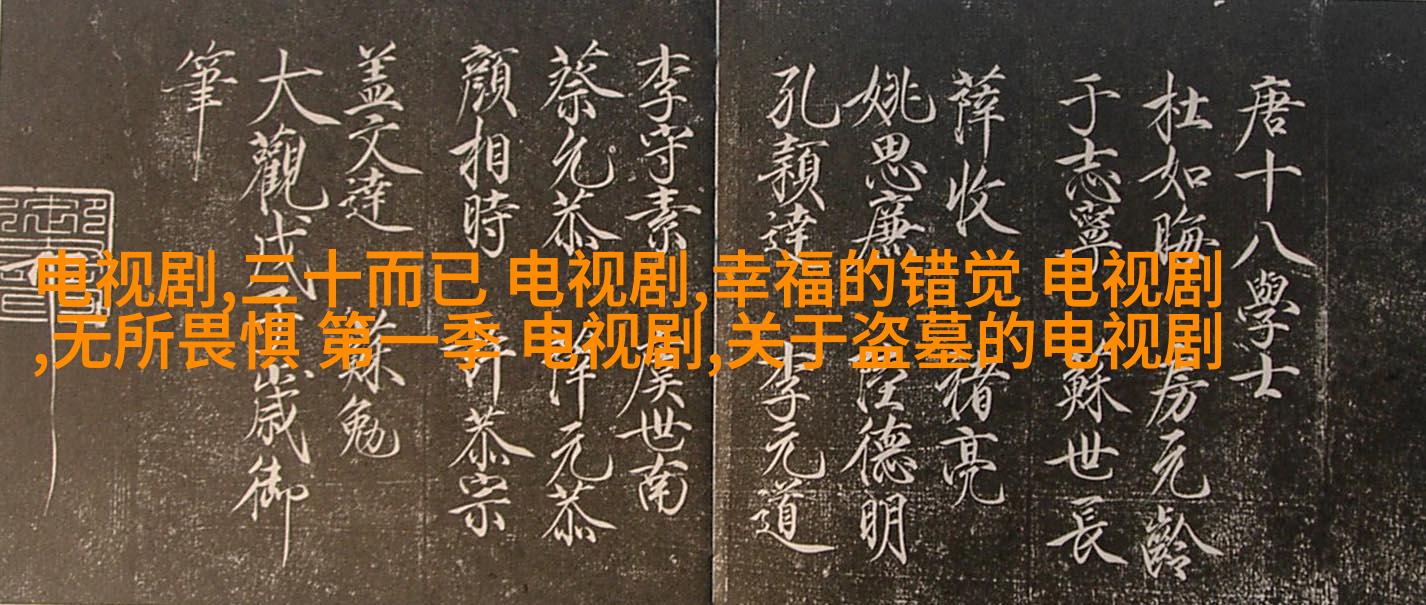 唐十八學士
杜如晦 房元齡
于志寧 蘇世長
薛收 褚亮
姚思廉 陸德明
孔穎達 李元道
李守素 虞世南
蔡允恭 薛元恭
顏相時 許恭宗
盖文達 蘇勉
大觀戊歲御
筆
电视剧,三十而已 电视剧,幸福的错觉 电视剧
,无所畏惧 第一季 电视剧,关于盗墓的电视剧